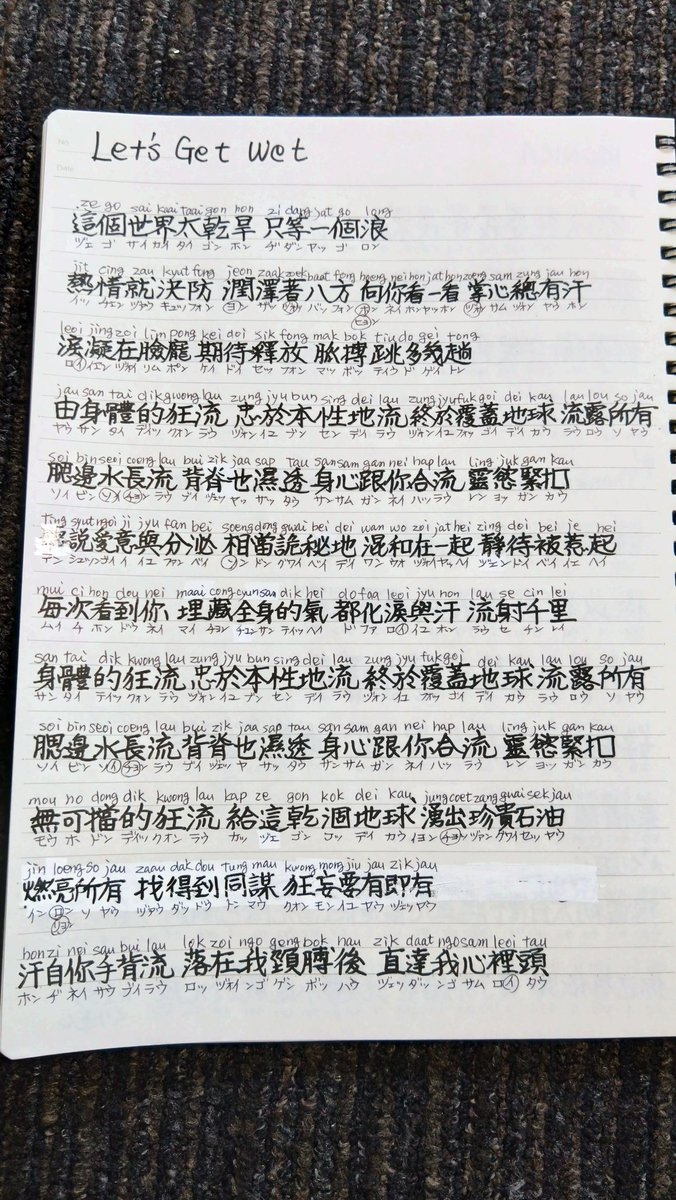 No.
Date
Let's Get Wet
ze go sai kaai taai gon hon zi dang jat go long
這個世界太乾旱 只等一個浪
ツェ ゴ サイ カイ タイ ゴン ホン ヂ ダン ヤッ ゴ ロン
jit cing zau kyut fung jeon zaak zoek baat fong hoeng nei hon jat hon zoeng sam zung jau hon
熱情就決防 潤澤著八方 向你看一看 掌心總有汗
イッ チェン ツァウ キュッ フォン ヨン ザッ ツォッ バッ フォン ホン ネイ ホン ヤッ ホン ツォン サム ツォン ヤウ ホン
ヒョン
leoi jing zoi lim pong kei doi sik fong mak bok tiu do gei tong
淚凝在臉龐 期待釋放 脈搏跳多幾趟
ロイ イェン ツォイ リム ポン ケイ ドイ セッ フォン マッ ボッ テイウ ド ゲイ トン
jau san tai dik kwong lau zung jyu bun sing dei lau zung jyu fuk goi dei kau lau lou so jau
由身體的狂流 忠於本性地流 終於覆蓋地球 流露所有
ヤウ サン タイ ディッ クオン ラウ ツォン イユ ブン セン デイ ラウ ツォン イユ フォッ ゴイ デイ カウ ラウ ロウ ソ ヤウ
soi bin seoi coeng lau bui zik jaa sap tau san sam gan nei hap lau ling juk gan kau
腮邊水長流 背脊也濕透 身心跟你合流 靈慾緊扣
ソイ ビン ソイ チョン ラウ ブイ ヅェッ ヤ サッ タウ サン サム ガン ネイ ハッ ラウ レン ヨッ ガン カウ
ting syut ngoi ji jyu fan bei soeng dong gwai bei dei wan wo zoi jat hei zing doi bei je hei
聽説愛意與分泌 相當詭秘地 混和在一起 靜待被惹起
テン シュッ ンゴイ イ イユ ファン ベイ ソン ドン グワイ ベイ デイ ワン ウォ ツォイ ヤッ ヘイ ヅェン ドイ ベイ イェ ヘイ
mui ci hon dou nei maai cong cyun san dik hei do faa leoi jyu hon lau se cin lei
每次看到你 埋藏全身的氣 都化淚與汗 流射千里
ムイ チ ホン ドウ ネイ マイ チョン チュン サン ティッ ヘイ ド ファ ロイ イユ ホン ラウ セ チン レイ
san tai dik kwong lau zung jyu bun sing dei lau zung jyu fuk goi dei kau lau lou so jau
身體的狂流 忠於本性地流 終於覆蓋地球 流露所有
サン タイ テイッ クオン ラウ ツォン イユ ブン セン デイ ラウ ツォン イユ フォッ ゴイ デイ カウ ラウ ロウ ソ ヤウ
soi bin seoi coeng lau bui zik jaa sap tau san sam gan nei hap lau ling juk gan kau
腮邊水長流 背脊也濕透 身心跟你合流 靈慾緊扣
ソイ ビン ソイ チョン ラウ ブイ ヅェッ ヤ サッ タウ サン サム ガン ネイ ハッ ラウ レン ヨッ ガン カウ
mou ho dong dik kwong lau kap ze gon kok dei kau jung coet zang quai sek jau
無可擋的狂流 給這乾涸地球 湧出珍貴石油
モウ ホ ドン ディッ クオン ラウ カッ ヅェ ゴン コッ デイ カウ イヨン チョッ ヅァン グワイ セッ ヤウ
jin loeng so jau zaau dak dou tung mau kwong mong jiu jau zik jau
燃亮所有 找得到同謀 狂妄要有即有
イン ロン ソ ヤウ ヅァウ ダッ ドウ トン マウ クオン モン イユ ヤウ ヅェッ ヤウ
リョン
hon zi nei sau bui lau lok zoi ngo geng bok hau zik daat ngo sam leoi tau
汗自你手背流 落在我頸膊後 直達我心裡頭
ホン ヂ ネイ サウ ブイ ラウ ロッ ヅォイ ンゴ ゲン ボッ ハウ ヅェッ ダッ ンゴ サム ロイ タウ